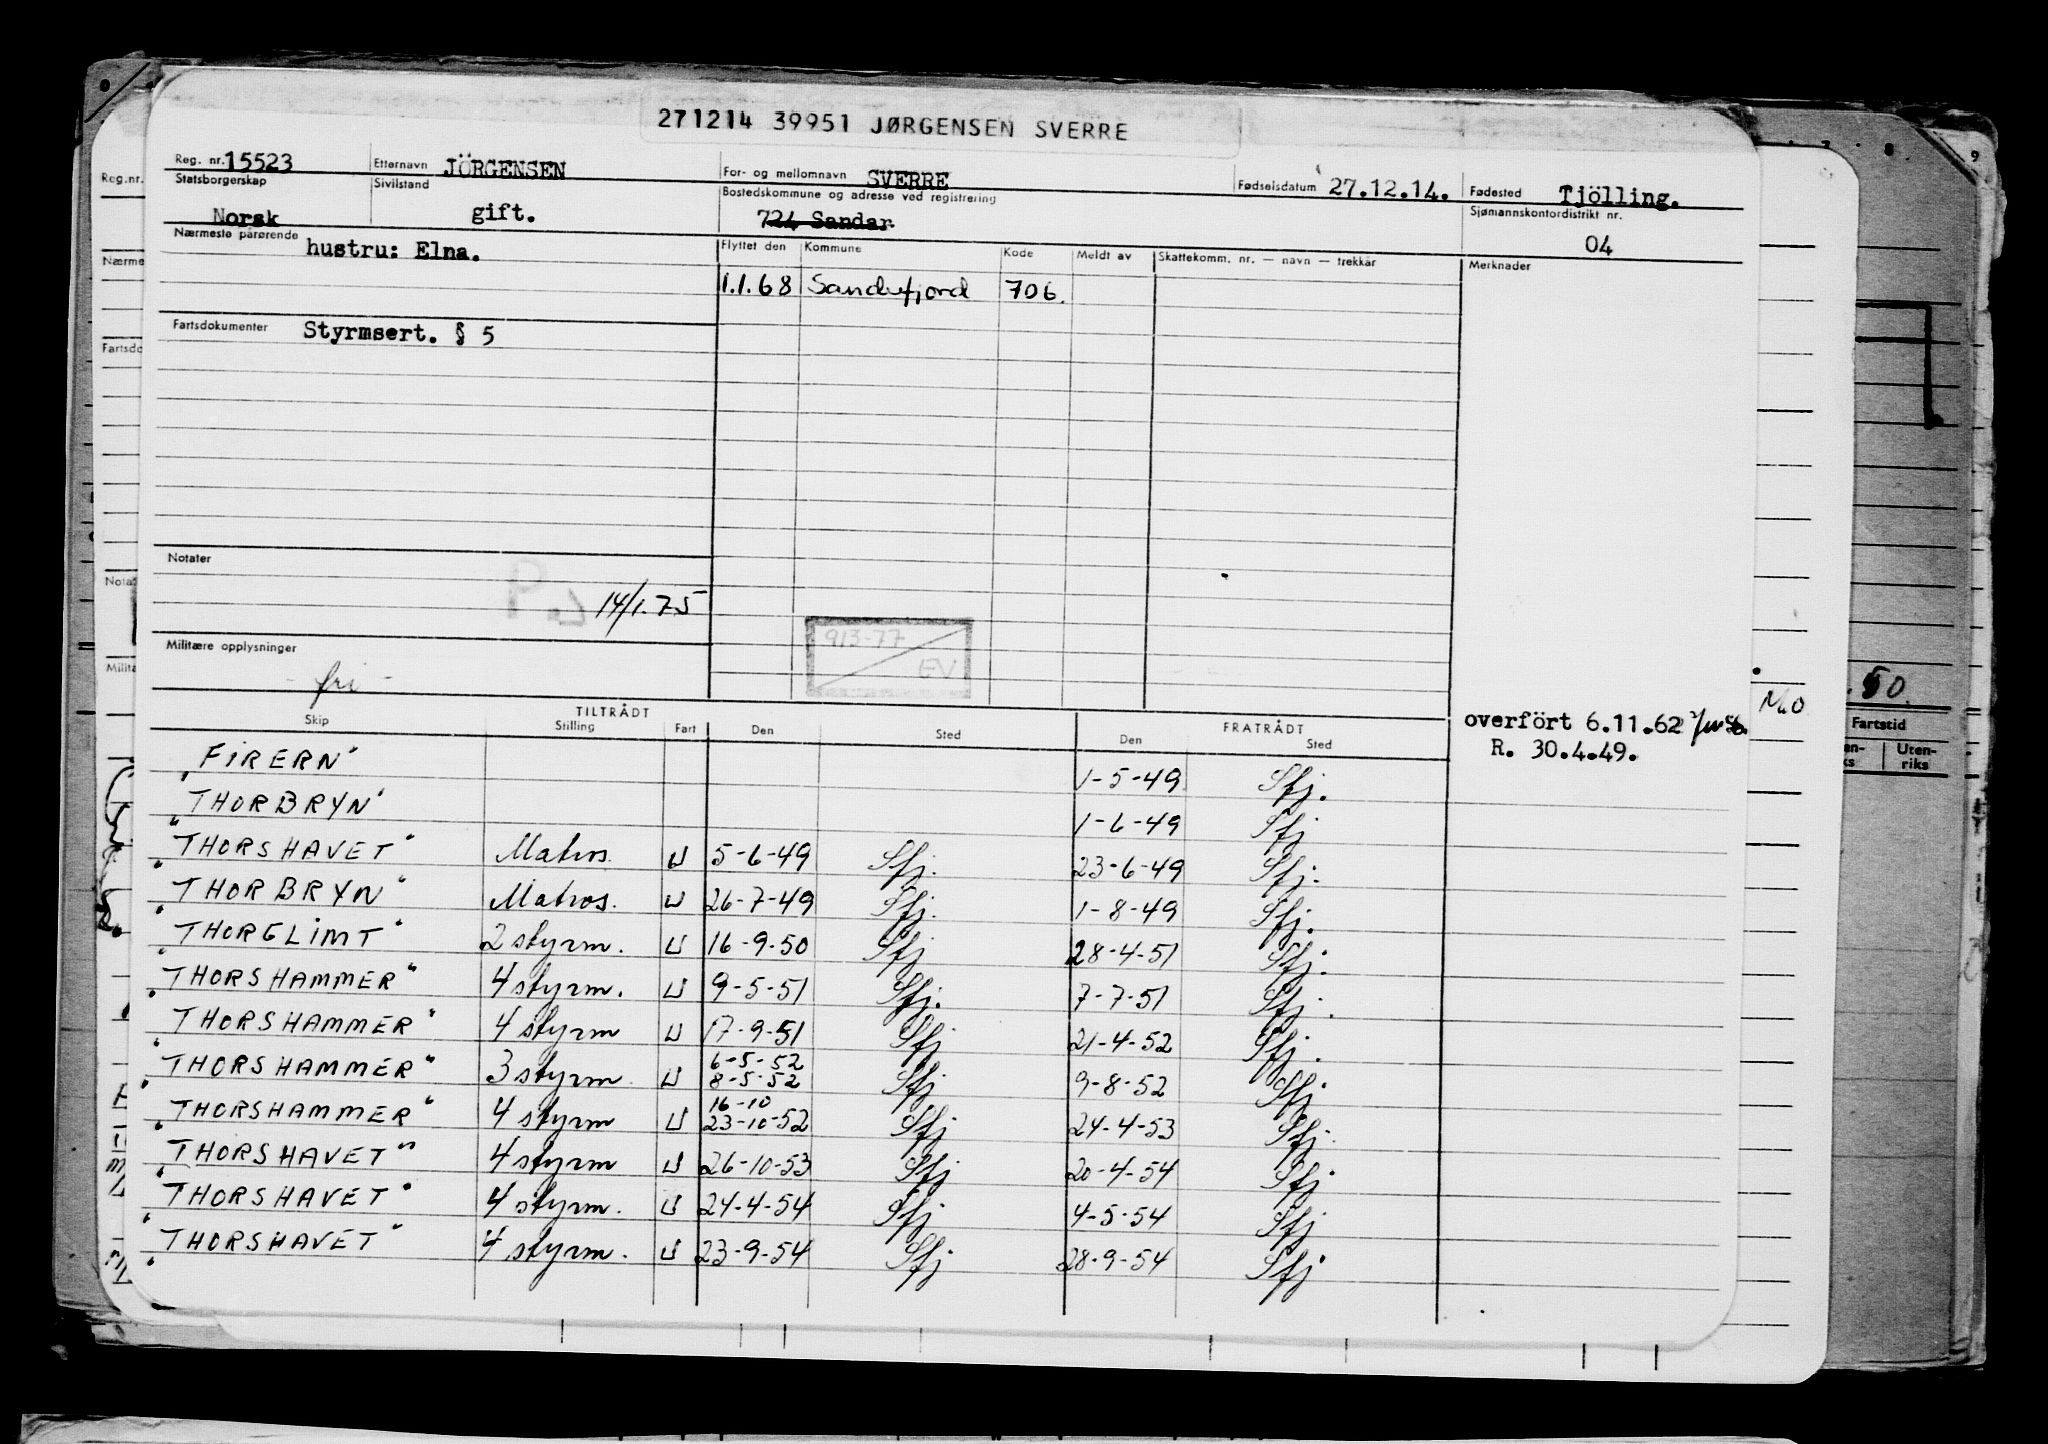 271214 39951 JØRGENSEN SVERRE
Reg. nr. 15523 Etternavn JÖRGENSEN For- og mellomnavn SVERRE Fødselsdatum 27.12.14. Fødested Tjölling.
Statsborgerskap Norsk Sivilstand gift. Bostedskommune og adresse ved registrering 724 Sandar Sjømannskontordistrikt nr. 04
Nærmeste pårørende hustru: Elna. Flyttet den Kommune Kode Meldt av Skattekomm. nr. — navn — trekkår Merknader
1.1.68 Sandefjord 706.
Fartsdokumenter Styrmsert. § 5
Notater
14/1.75
913-77
EV
Militære opplysninger
- fri -
TILTRÅDT FRATRÅDT
Skip Stilling Fart Den Sted Den Sted
overfört 6.11.62
R. 30.4.49.
"FIRERN" 1-5-49 Sfj.
"THORBRYN" 1-6-49 Sfj
"THORSHAVET" Matros. U 5-6-49 Sfj. 23-6-49 Sfj.
"THORBRYN" Matros. U 26-7-49 Sfj. 1-8-49 Sfj.
"THORGLIMT" 2 styrm. U 16-9-50 Sfj 28-4-51 Sfj.
"THORSHAMMER" 4 styrm. U 9-5-51 Sfj. 7-7-51 Sfj.
"THORSHAMMER" 4 styrm U 17-9-51 Sfj 21-4-52 Sfj.
"THORSHAMMER" 3 styrm. U 6-5-52 8-5-52 Sfj 9-8-52 Sfj
"THORSHAMMER" 4 styrm U 16-10 23-10-52 Sfj 24-4-53 Sfj.
"THORSHAVET" 4 styrm U 26-10-53 Sfj 20-4-54 Sfj
"THORSHAVET" 4 styrm. U 24-4-54 Sfj 4-5-54 Sfj
"THORSHAVET" 4 styrm. U 23-9-54 Sfj 28-9-54 Sfj
Reg.nr.
Nærme
Fartsdo
Nota
Milita
50
Fartstid
Uten-
riks